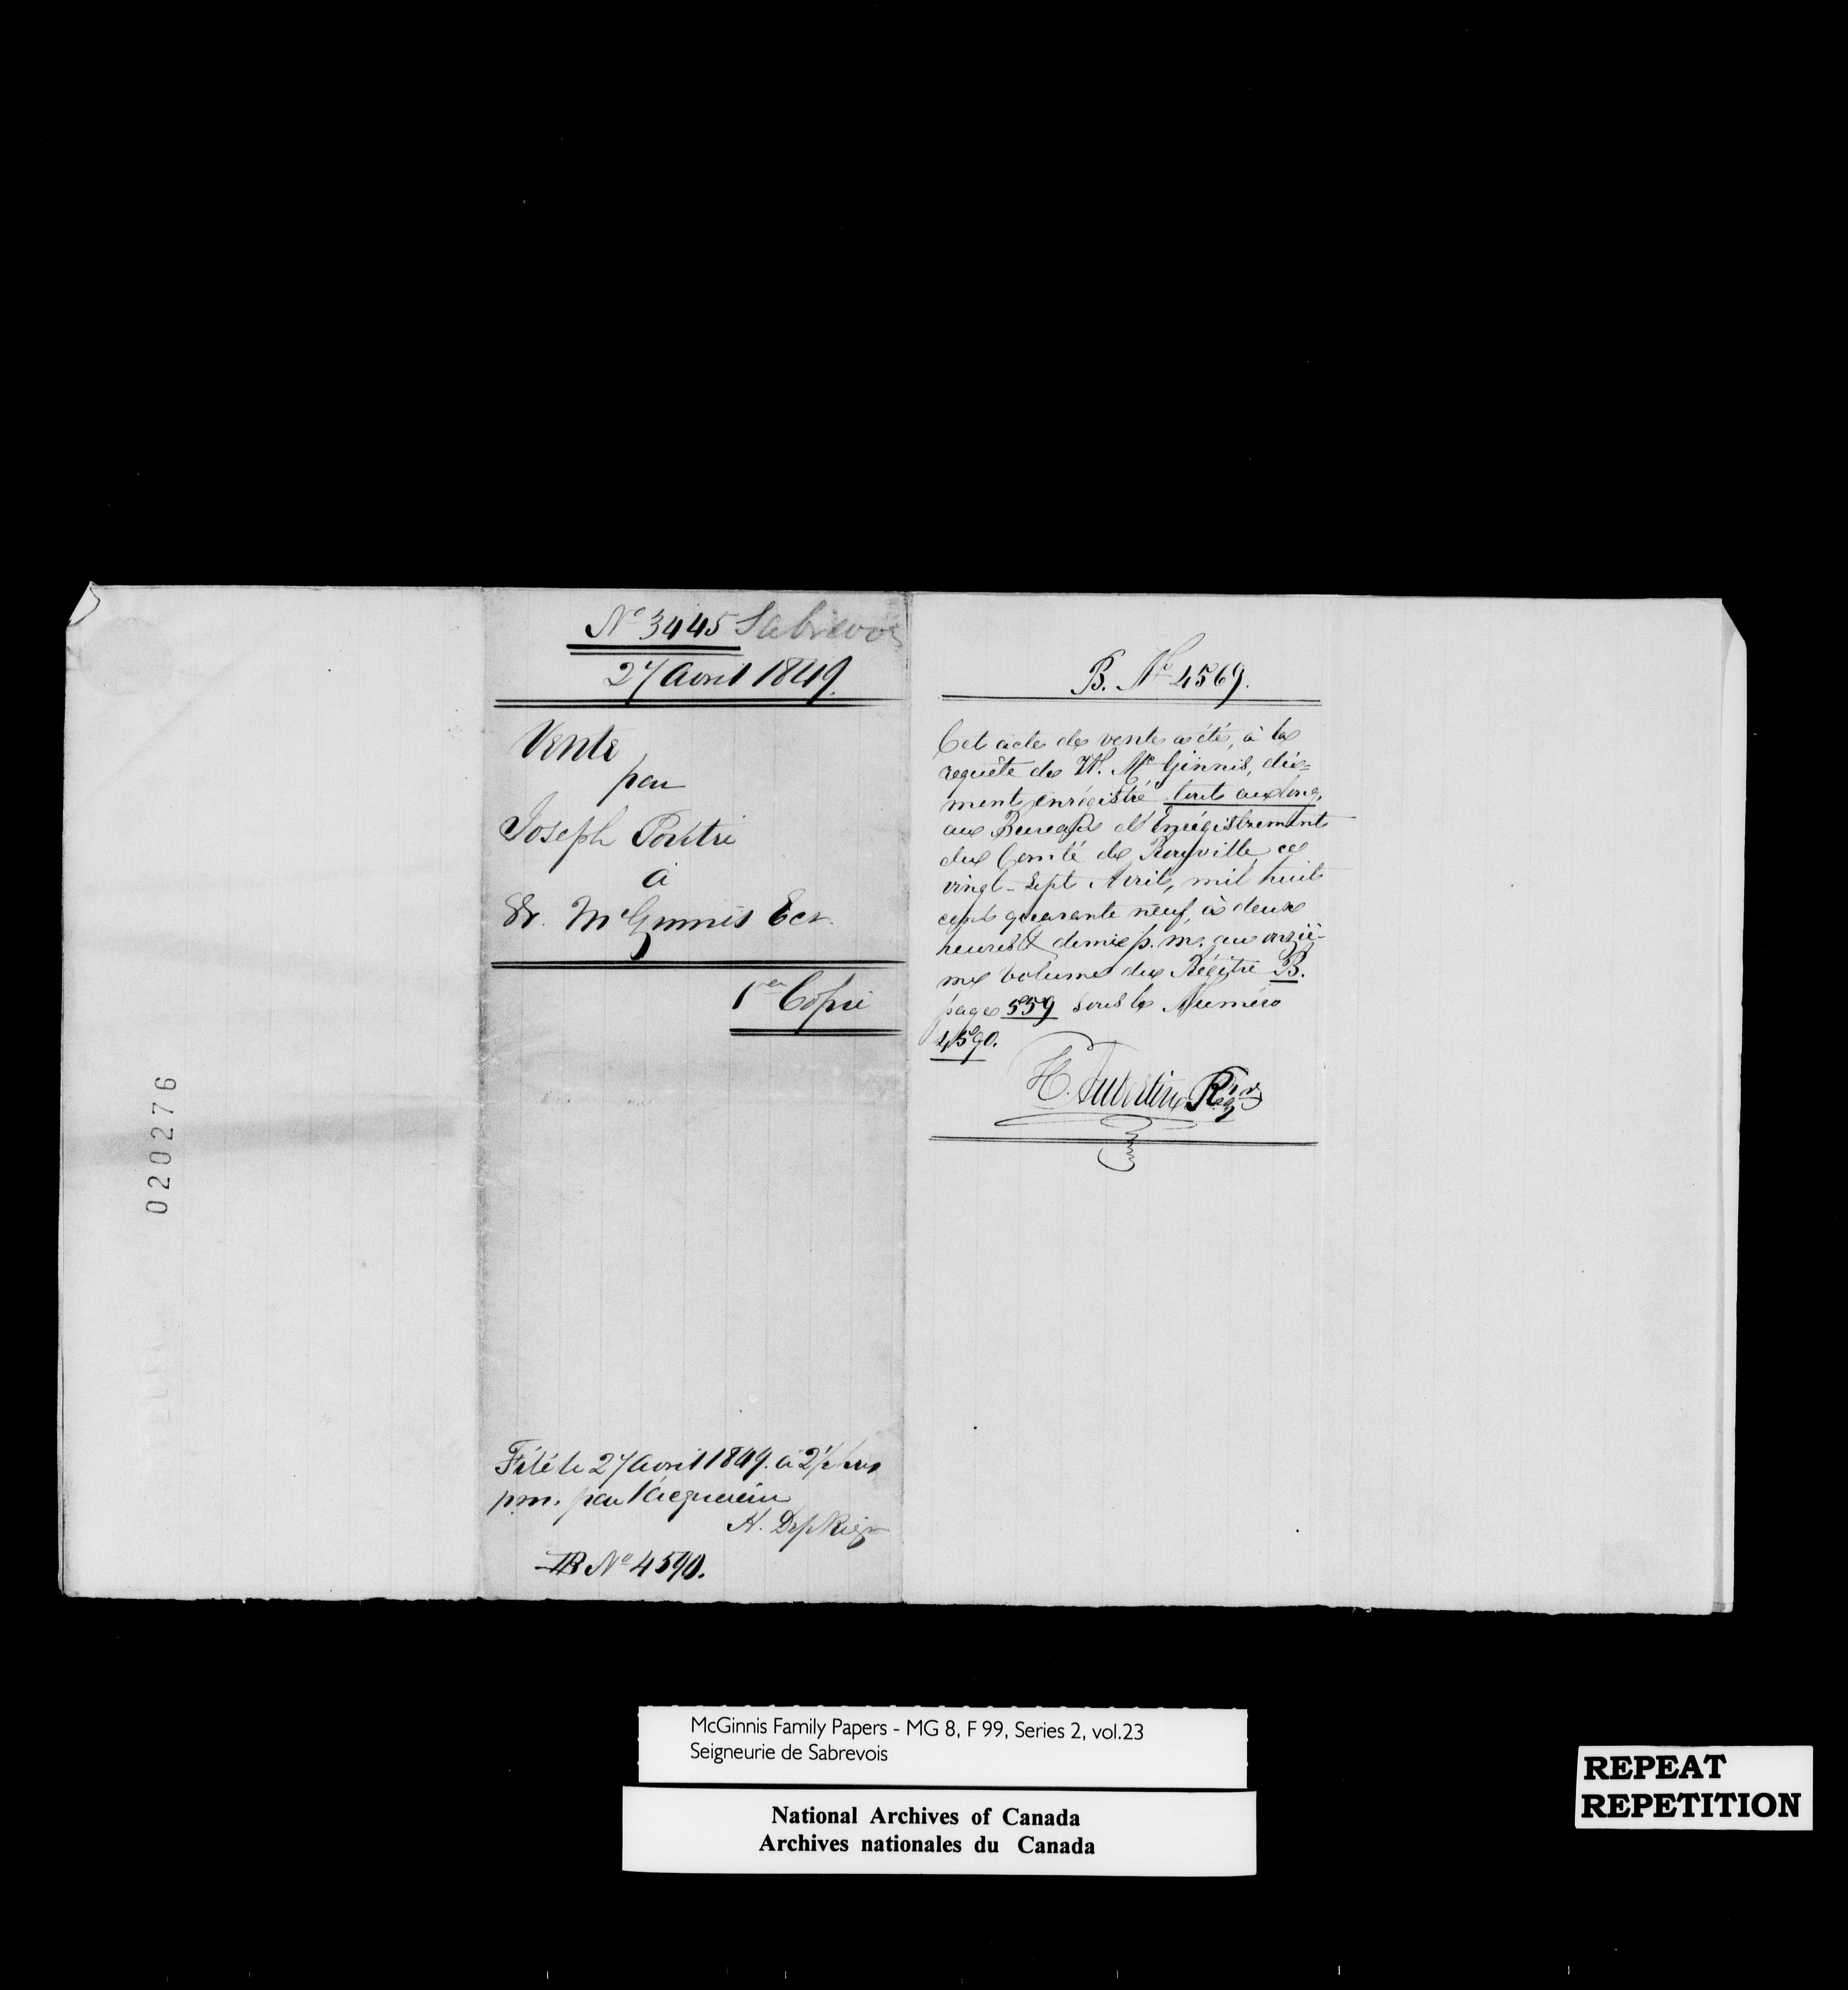 020276
No 3445 Sabrevois
27 Avril 1849.
Vente
par
Joseph Poutri
à
Wm. McGinnis Ecr.
1ère Copie
Filé le 27 Avril 1849. à 2½ hrs
pm. par l'acquereur
H. Dep Regr
B No 4590.
B. No 4569.
Cet acte de vente a été, à la
requête de W. McGinnis, dû=
ment enrégistré tout au long,
au Bureau d'Enrégistrement
du Comté de Rouville ce
vingt-sept Avril, mil huit
cent quarante neuf, à deux
heures & demie p. m. au onziè-
me volume du Régitre B.
page 559 sous le Numéro
4590.
H. Aubertin Regr
McGinnis Family Papers - MG 8, F 99, Series 2, vol.23
Seigneurie de Sabrevois
National Archives of Canada
Archives nationales du Canada
REPEAT
REPETITION